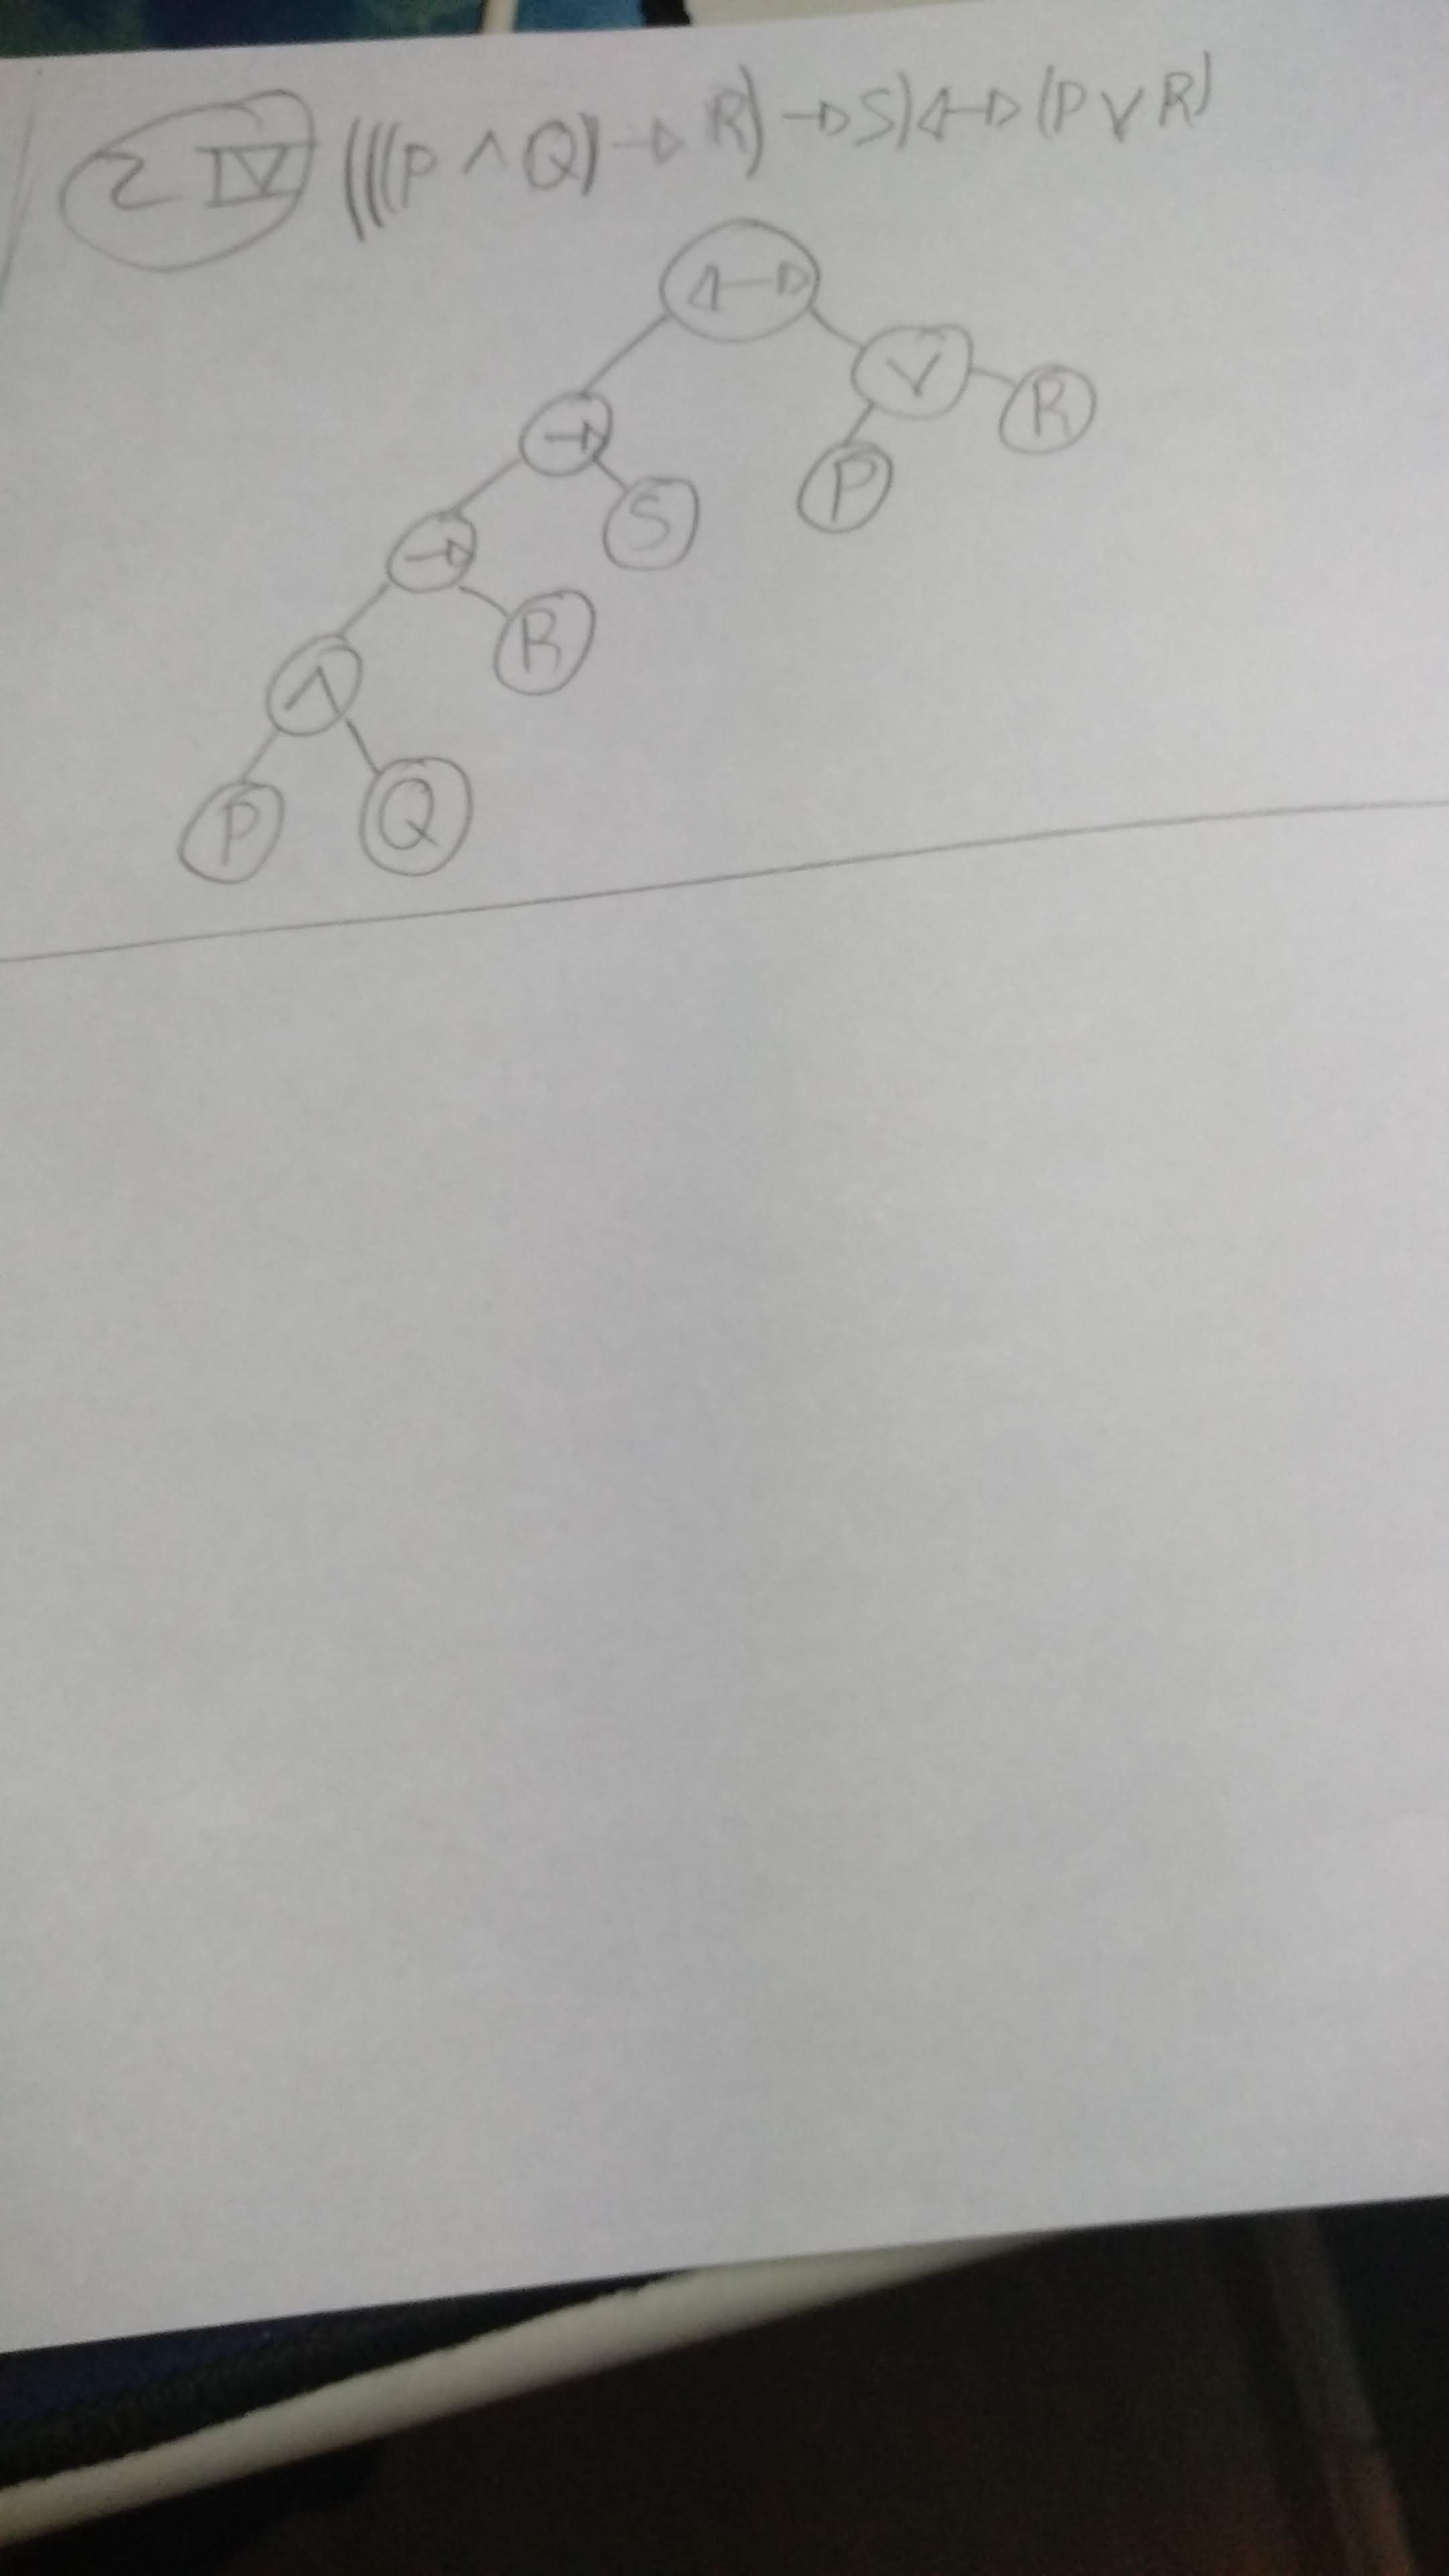 2 IV (((P ∧ Q) → R) → S) ↔ (P ∨ R)
↔
∨
R
→
P
S
→
R
∧
P Q